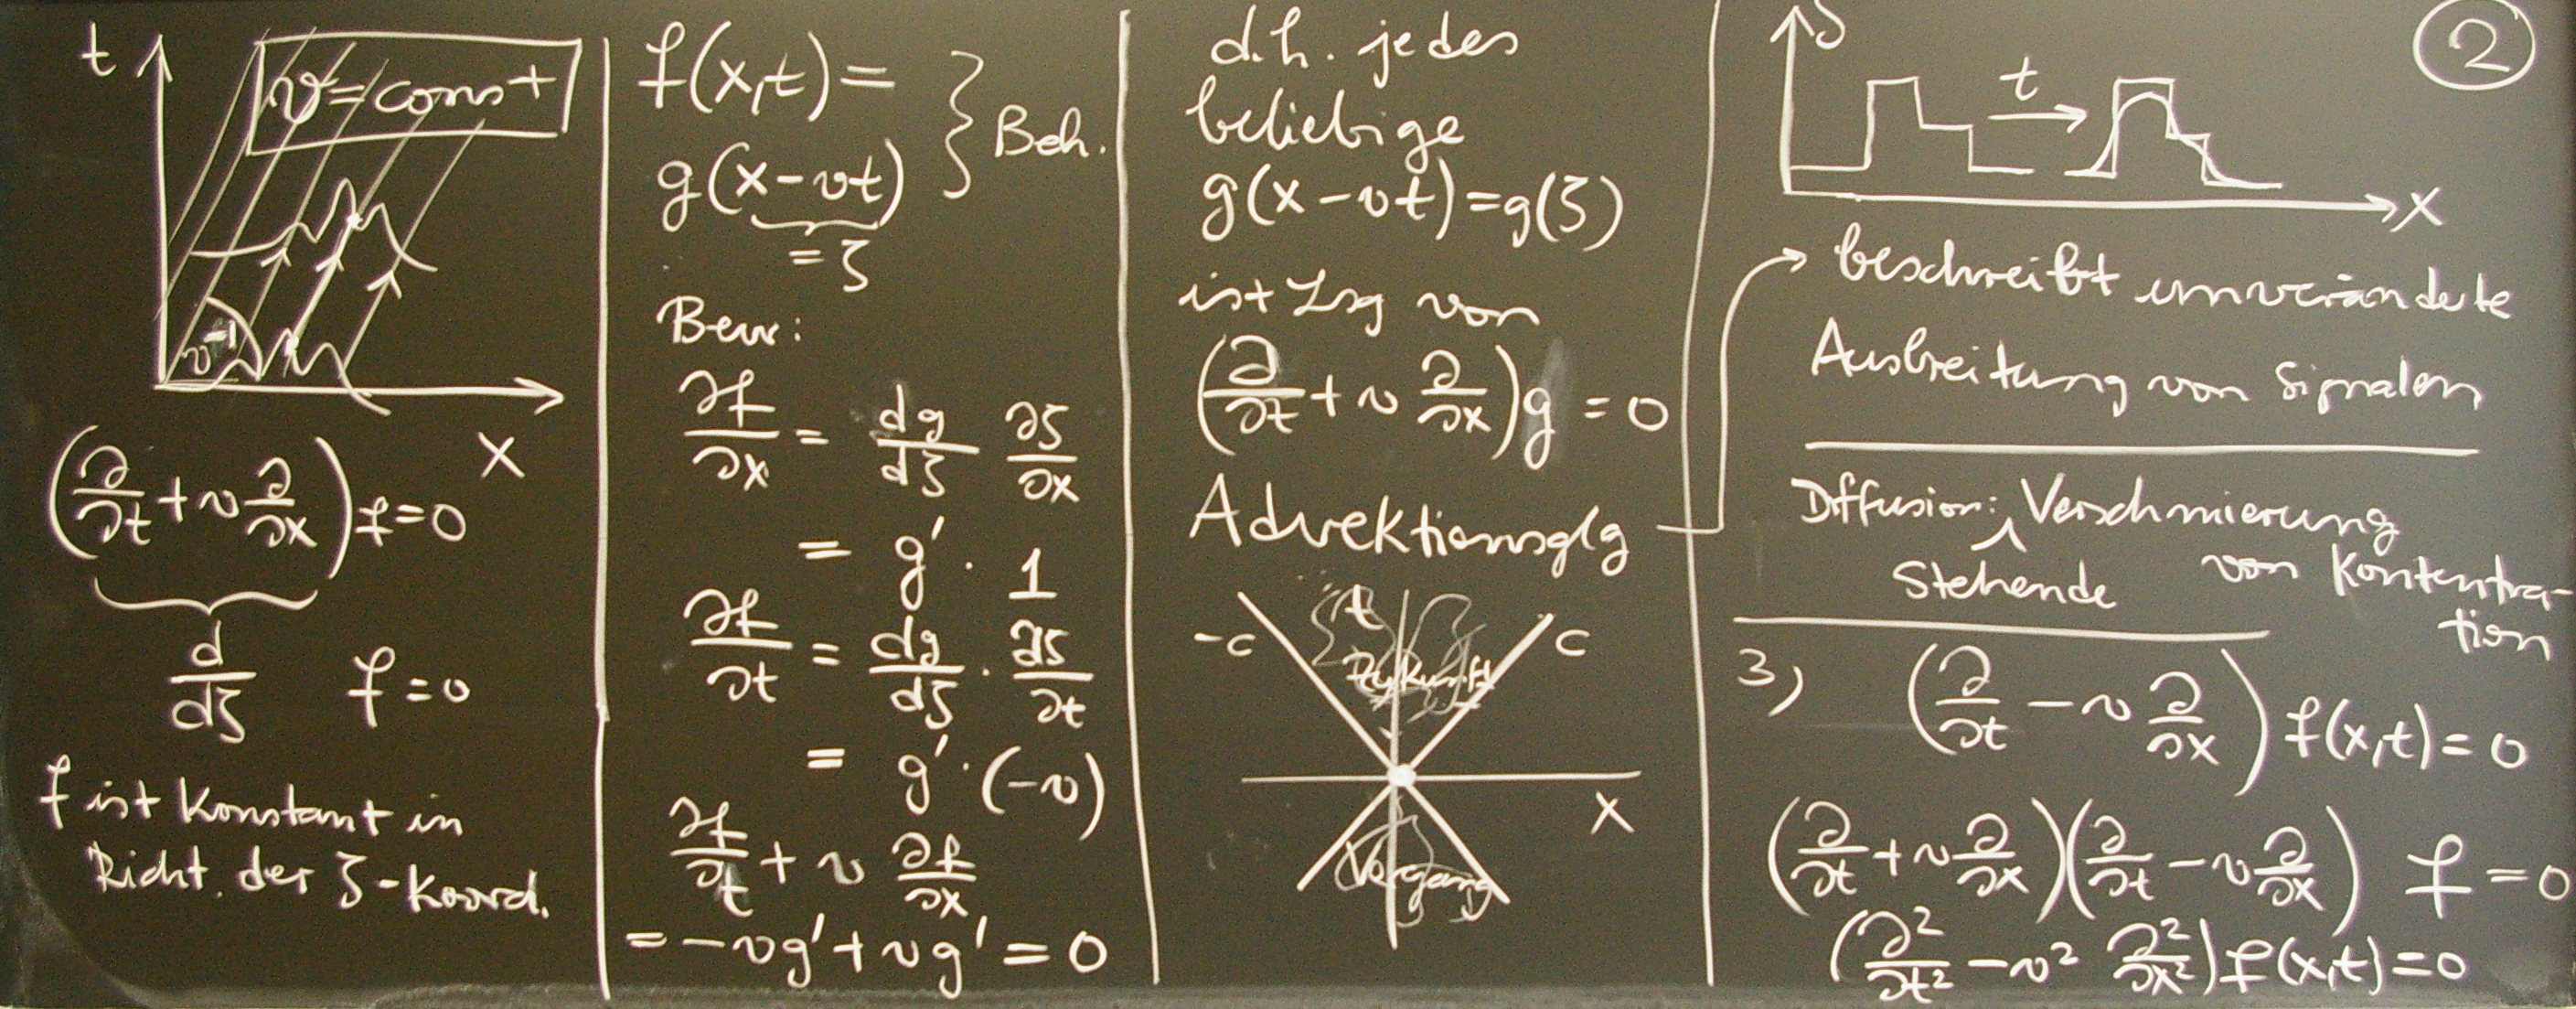 t
v = const
v⁻¹
x
(∂/∂t + v ∂/∂x) f = 0
d/dζ f = 0
f ist konstant in
Richt. der ζ-Koord.
f(x,t) =
g(x-vt) } Beh.
= ζ
Bew:
∂f/∂x = dg/dζ ∂ζ/∂x
= g' · 1
∂f/∂t = dg/dζ · ∂ζ/∂t
= g' · (-v)
∂f/∂t + v ∂f/∂x
= -vg' + vg' = 0
d.h. jedes
beliebige
g(x-vt) = g(ζ)
ist Lsg von
(∂/∂t + v ∂/∂x) g = 0
Advektionsglg
t
-c
c
Zukunft
x
Vergang
2
t
x
beschreibt unveränderte
Ausbreitung von Signalen
Diffusion: Verschmierung
Stehende
von Konzentra-
tion
3) (∂/∂t - v ∂/∂x) f(x,t) = 0
(∂/∂t + v ∂/∂x)(∂/∂t - v ∂/∂x) f = 0
(∂²/∂t² - v² ∂²/∂x²) f(x,t) = 0